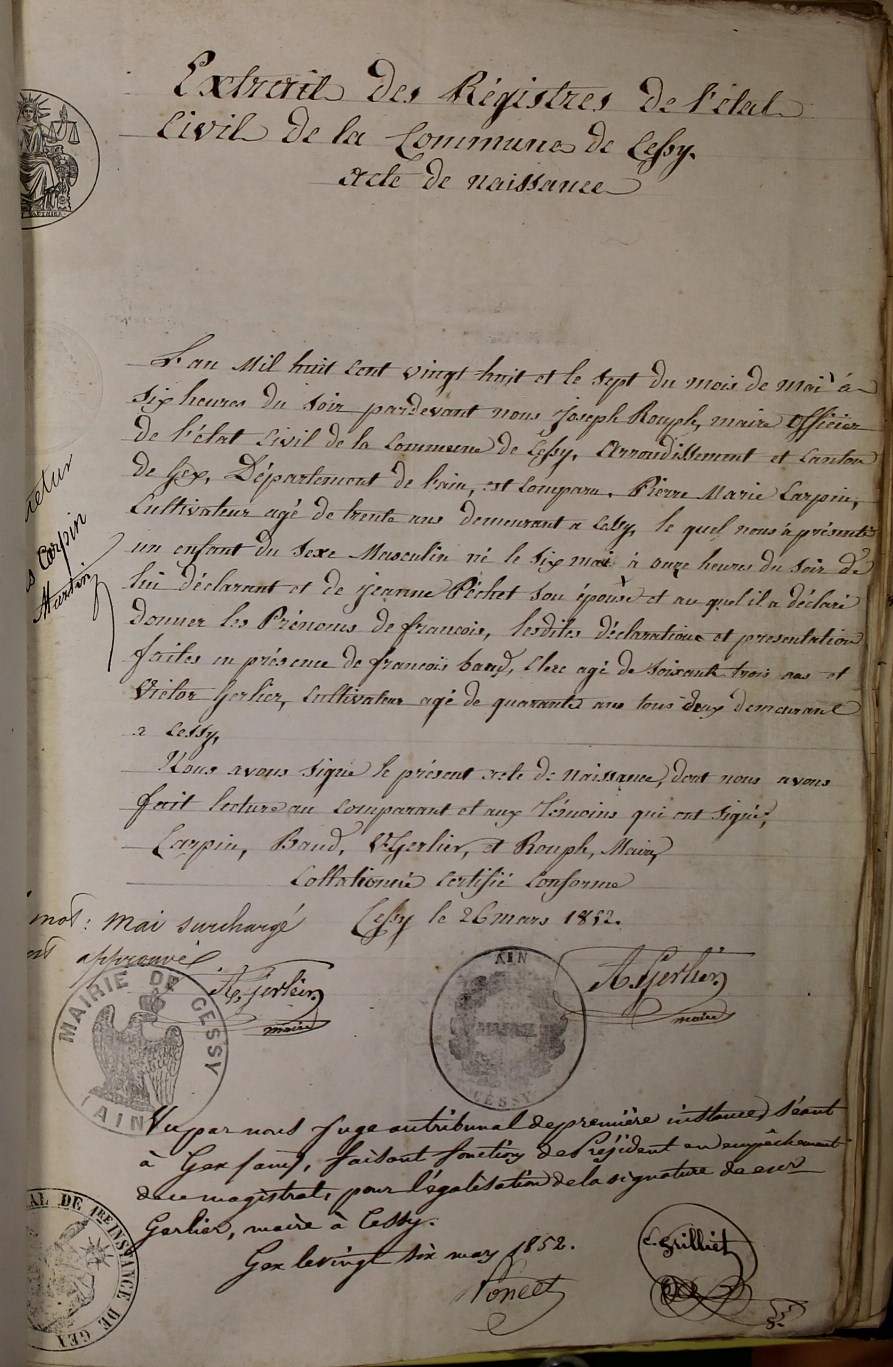 Extrait des Régistres de l'état
Civil de la Commune de Cessy.
acte de naissance
L'an Mil huit Cent vingt huit et le sept du mois de mai à
six heures du soir pardevant nous Joseph Rouph, maire officier
de l'état Civil de la Commune de Cessy, Arrondissement et Canton
de Gex, Département de l'ain, est Comparu. Pierre Marie Carpin,
Cultivateur agé de trente ans demeurant a Cessy, le quel nous a présenté
un enfant du sexe Masculin né le six mai à onze heures du soir de
lui déclarant et de Jeanne Péchet son épouse et au quel il a déclaré
donner les Prénoms de francois, lesdites déclaration et presentation
faites en présence de francois baud, Clerc agé de soixante trois ans et
Victor Gerlier, Cultivateur agé de quarante ans tous deux demeurant
a Cessy,
Nous avons signé le présent acte de naissance, dont nous avons
fait lecture au Comparant et aux témoins qui ont signé,
Carpin, Baud, V. Gerlier, et Rouph, Maire,
Collationné Certifié Conforme
Cessy le 26 mars 1852.
mot: mai surchargé
approuvé
A. Gerlier
maire
A. Gerlier
maire
MAIRIE DE CESSY
(AIN)
AIN
MAIRIE
CESSY
Carpin
Martin
Vu par nous Juge au tribunal de première instance, séant
à Gex (ain), faisant fonctions de Président en empêchement
de ce magistrat, pour légalisation de la signature de
Gerlier, maire à Cessy.
Gex le vingt six mars 1852.
Poncet
C. Grilliet
DE 1RE INSTANCE DE GEX